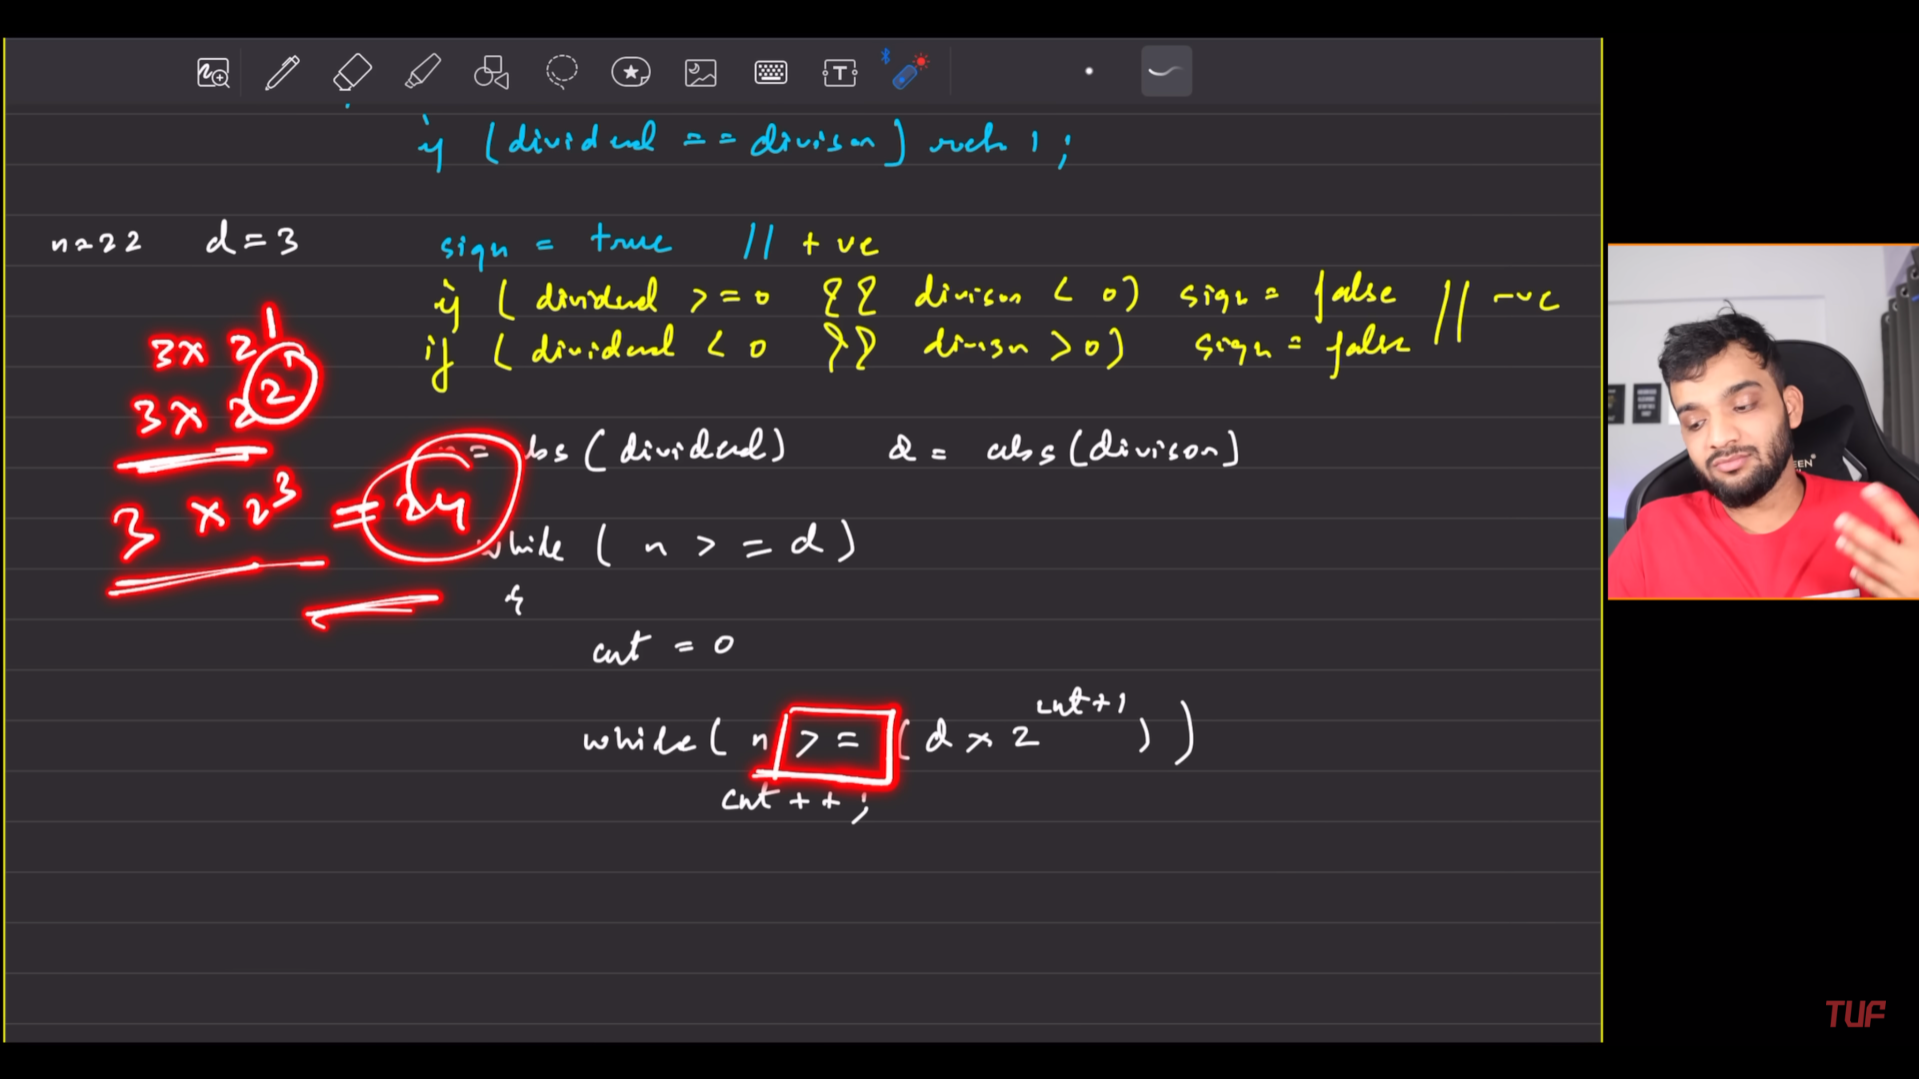 if (dividend == divison) return 1;
n=22 d=3
sign = true // +ve
if (dividend >=0 && divison < 0) sign = false // -ve
if (dividend < 0 && divison > 0) sign = false
3 x 2^1
3 x 2^2
3 x 2^3 = 24
= abs (dividend) d = abs (divison)
while ( n >= d )
{
cnt = 0
while ( n >= (d x 2^cnt+1 ) )
cnt ++ ;
TUF